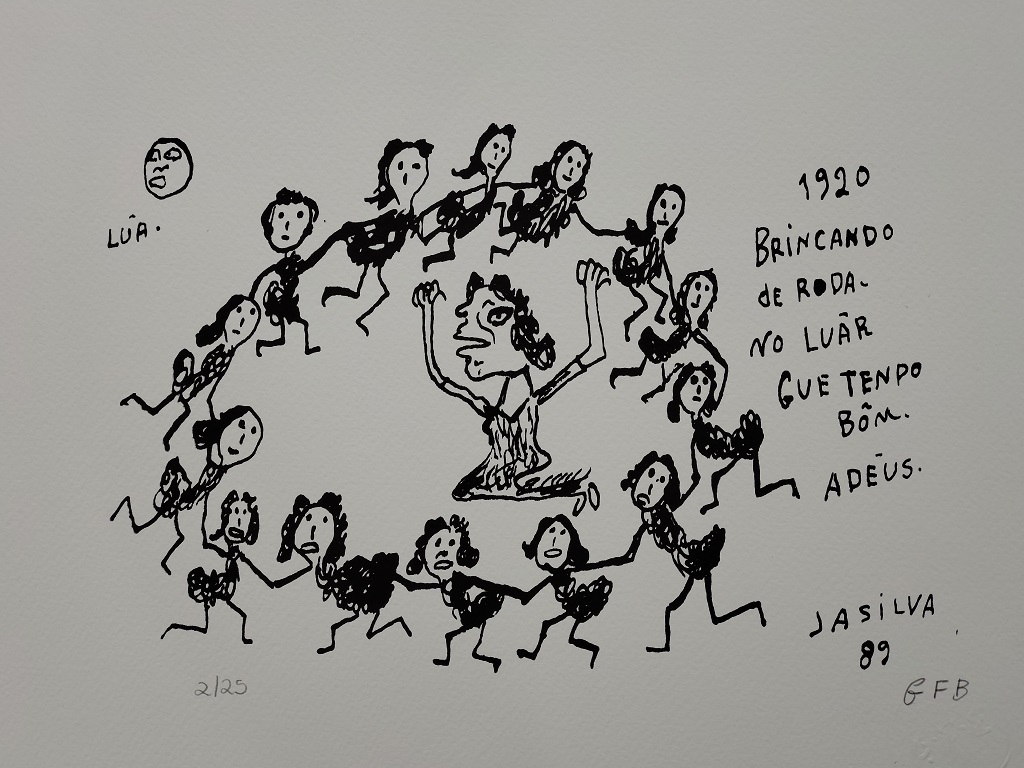 LÛA.
1920
BRINCANDO
de RODA.
NO LUÂR
GUE TENPO
BÔM.
ADĒUS.
JASILVA
89
2/25
GFB